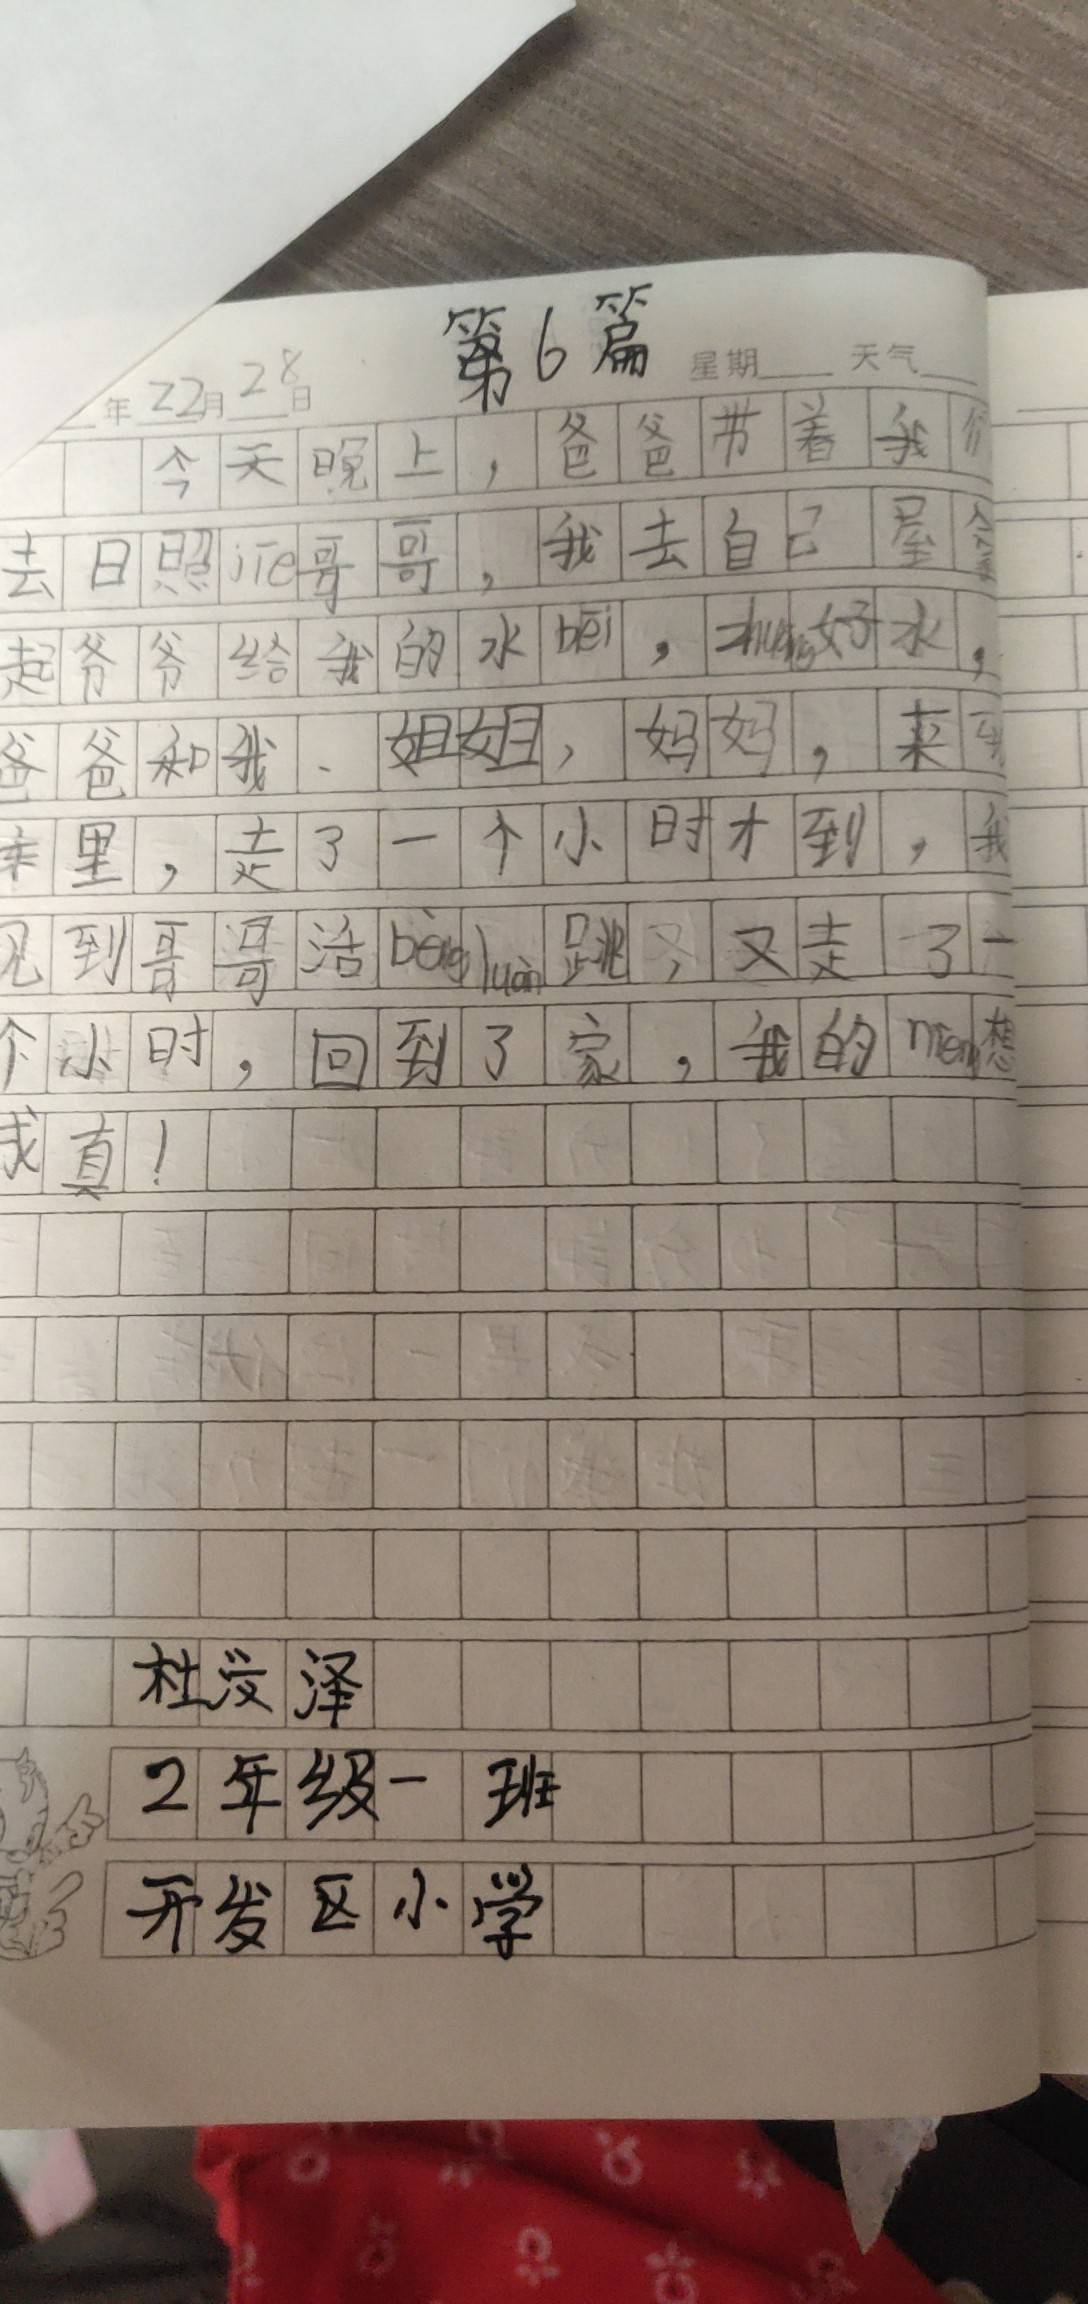 第6篇
年22月28日 星期 天气
今天晚上，爸爸带着我们
去日照jiē哥哥，我去自己屋拿
起爷爷给我的水bēi，zhuāng好水，
爸爸和我、姐姐，妈妈，来到
车里，走了一个小时才到，我
见到哥哥活bèng luàn跳，又走了一
个小时，回到了家，我的mèng想
成真！
杜泽
2年级一班
开发区小学